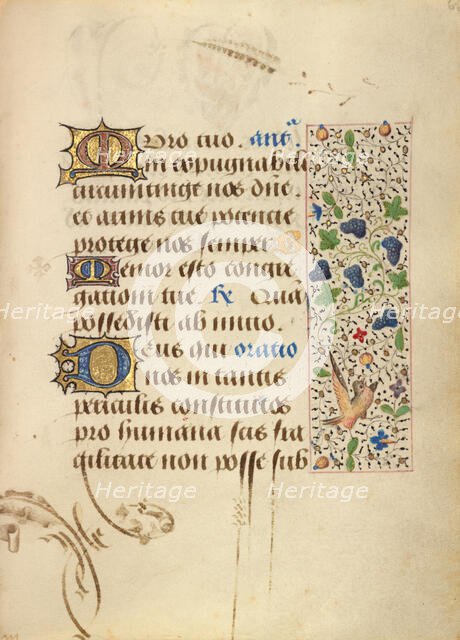 Muro tuo. añt
in expugnabili
circumcinge nos dñe
et armis tue potencie
protege nos semper
Memor esto congre
gationi tue. ℟ Quã
possedisti ab initio.
Deus qui oratio
nos in tantis
periculis constitutos
pro humana scis fra
gilitate non posse sub
Heritage Heritage Heritage
Heritage Heritage
Heritage Heritage